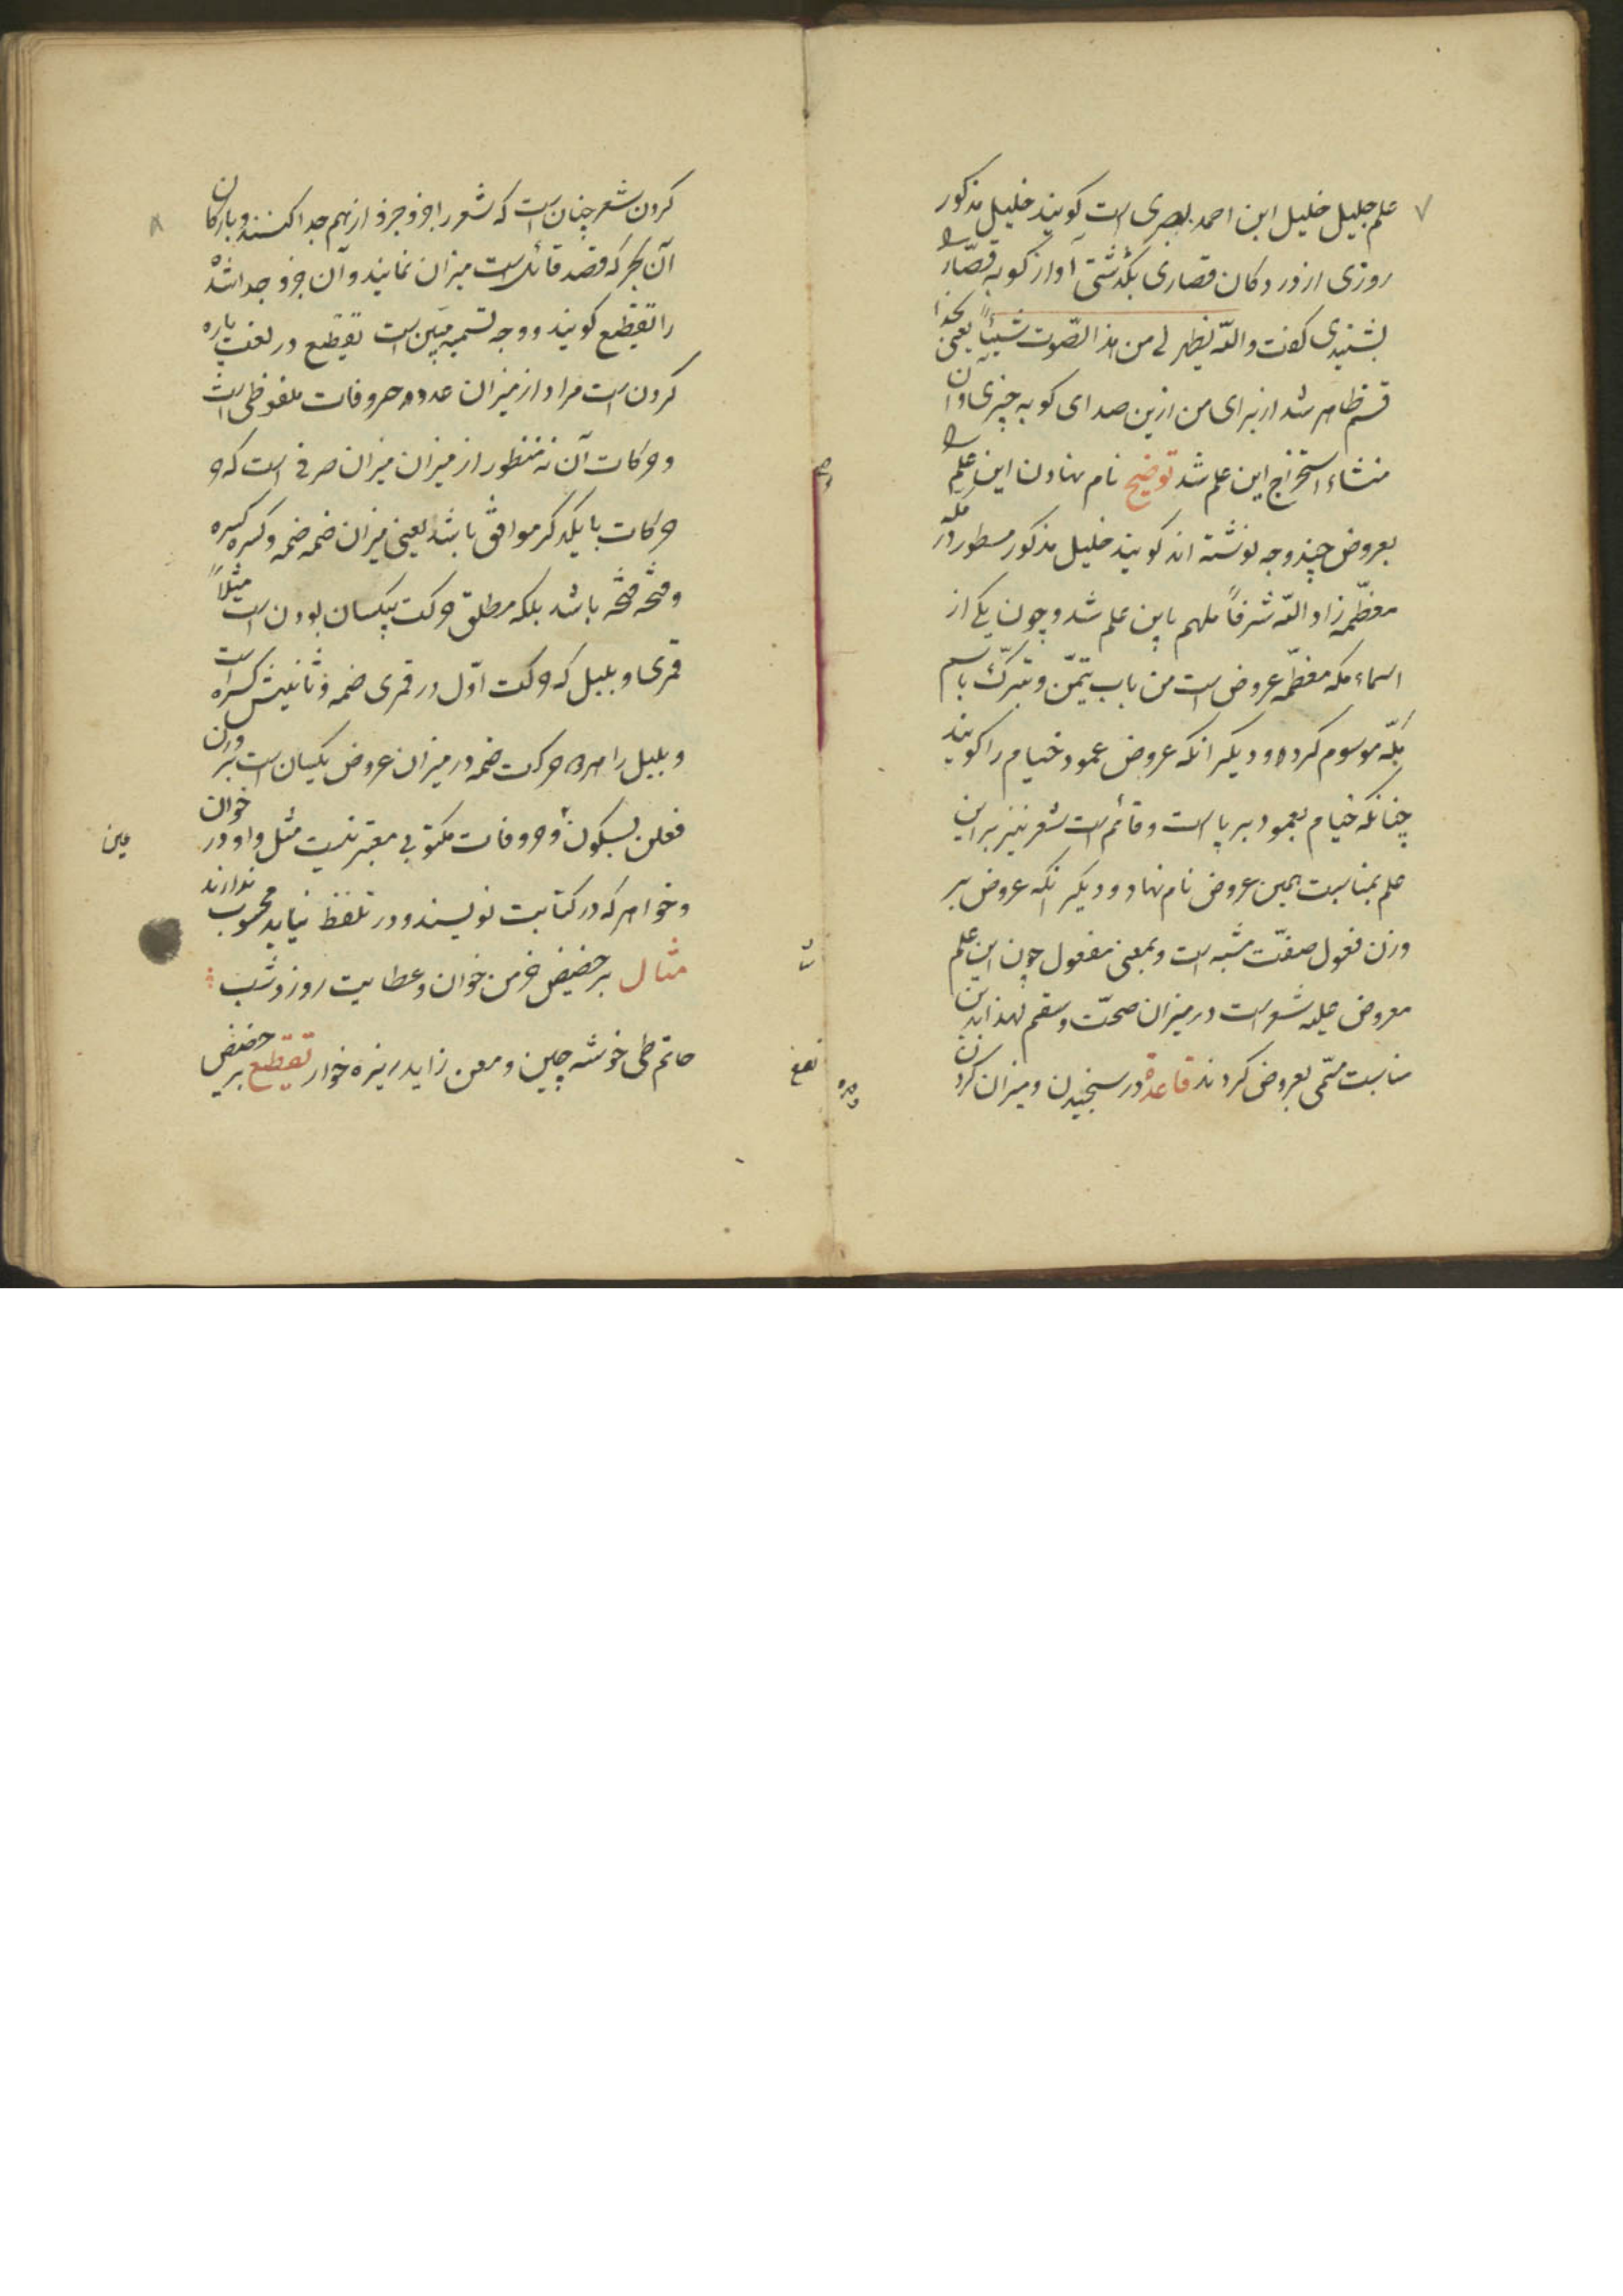 ۷
علم جلیل خلیل ابن احمد بصری است کویند خلیل مذکور
روزی از در دکان قصاری بگذشتی آواز کوبه قصار را
بشنیدی گفت والله یظهر لی من هذا الصّوت شیئاً یعنی بخدا
قسم ظاهر شد از برای من ازین صدای کوبه چیزی و آن
منشاء استخراج این علم شد توضیح نام نهادن این علم را
بعروض چند وجه نوشته اند کویند خلیل مذکور مسطور در مکه
معظّمه زاد الله شرفاً ملهم باین علم شد و چون یکی از
اسماء مکه معظّمه عروض است من باب تیمّن و تبرّک باسم
مکّه موسوم کرده و دیکر انکه عروض عمود خیام را کویند
چنانکه خیام بعمود برپا است و قائم است شعر نیز براین
علم بمناسبت همین عروض نام نهاد و دیکر انکه عروض بر
وزن فعول صفت مشبه است و بمعنی مفعول چون این علم
معروض علیه شعر است در میزان صحت و سقم لهذا بدین
مناسبت مسمّی بعروض کردند قاعدة در سنجیدن و میزان کردن
۸
کردن شعر چنان است که شعر را جزو جزو از هم جدا کنند و با ارکان
آن بحر که قصد قائل است میزان نمایند و آن جزو جدا شده
را تقطیع کویند و وجه تسمیه مبیّن است تقطیع در لغت پاره
کردن است مراد از میزان عدد حروفات ملفوظی است
و حرکات آن نه منظور از میزان میزان صرفی است که
حرکات با یکدکر موافق باشد یعنی میزان ضمه ضمه و کسره کسره
و فتحه فتحه باشد بلکه مطلق حرکت یکسان بودن است مثلاً
قمری و بلبل که حرکت اوّل در قمری ضمه و ثانیش کسره است
و بلبل را هر دو حرکت ضمه در میزان عروض یکسان است بر وزن
فعلن بسکون و حروفات مکتوبی معتبر نیست مثل واو در خوان
و خواهر که در کتابت نویسند و در تلفظ نیاید محسوب ندارند
مثال بر حضیض خرمن خوان و عطایت روز و شب
حاتم طی خوشه چین و معن زاید ریزه خوار تقطیع بر حضیض